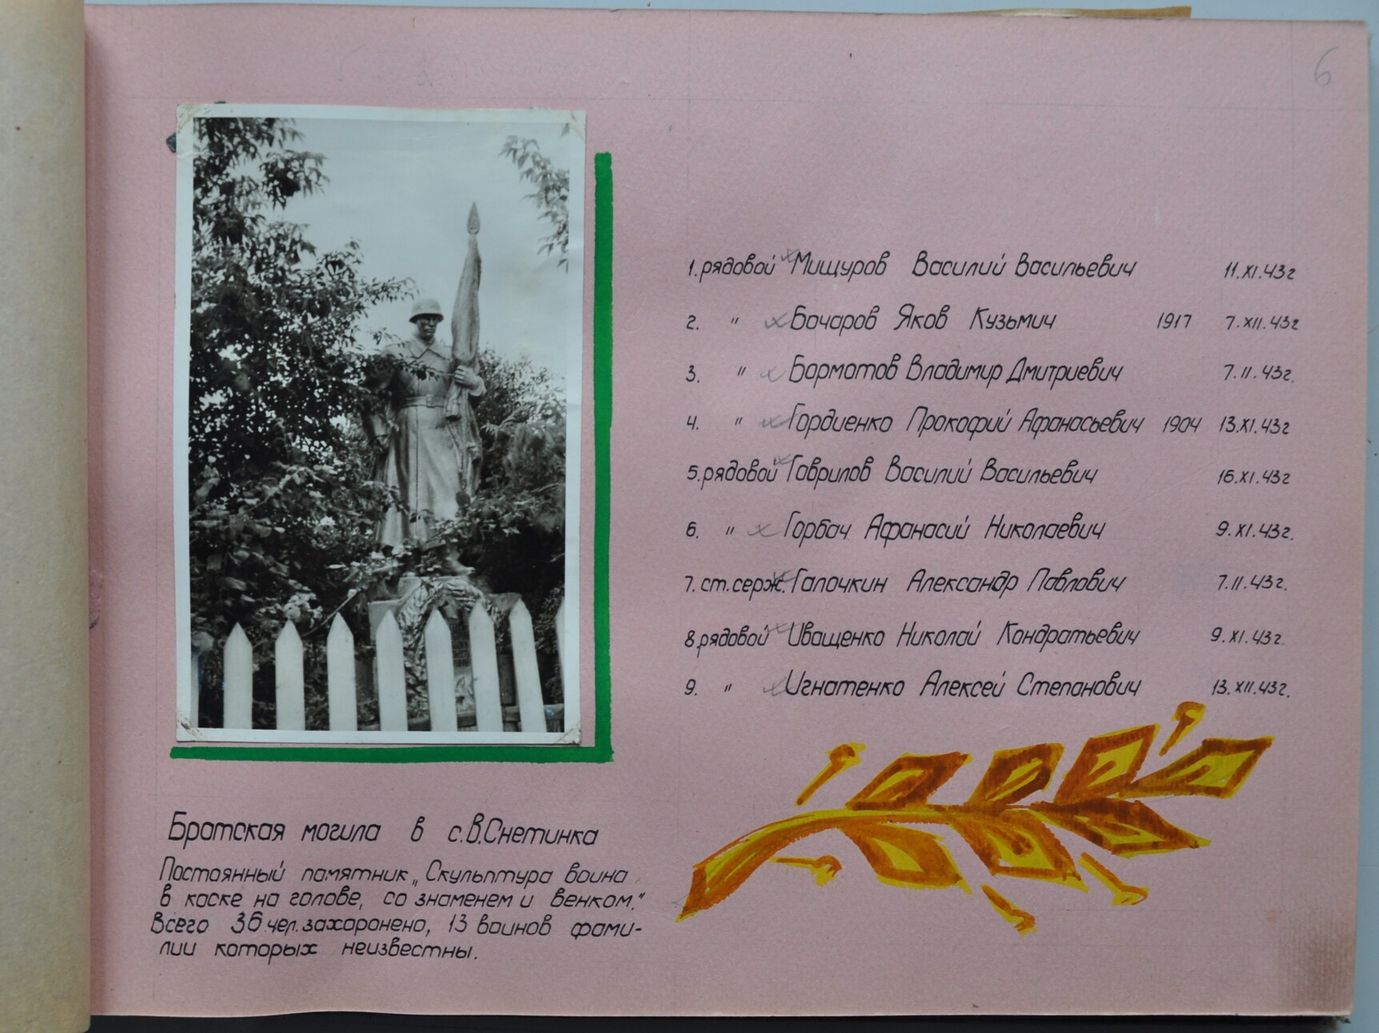 6
1. рядовой Мищуров Василий Васильевич 11.XI.43г
2. " Бочаров Яков Кузьмич 1917 7.XII.43г
3. " Борматов Владимир Дмитриевич 7.II.43г.
4. " Гордиенко Прокофий Афанасьевич 1904 13.XI.43г
5. рядовой Гаврилов Василий Васильевич 16.XI.43г
6. " Горбач Афанасий Николаевич 9.XI.43г.
7. ст. серж. Галочкин Александр Павлович 7.II.43г.
8. рядовой Иващенко Николай Кондратьевич 9.XI.43г.
9. " Игнатенко Алексей Степанович 13.XII.43г.
Братская могила в с.В.Снетинка
Постоянный памятник „Скульптура воина
в каске на голове, со знаменем и венком."
Всего 36 чел. захоронено, 13 воинов фами-
лии которых неизвестны.